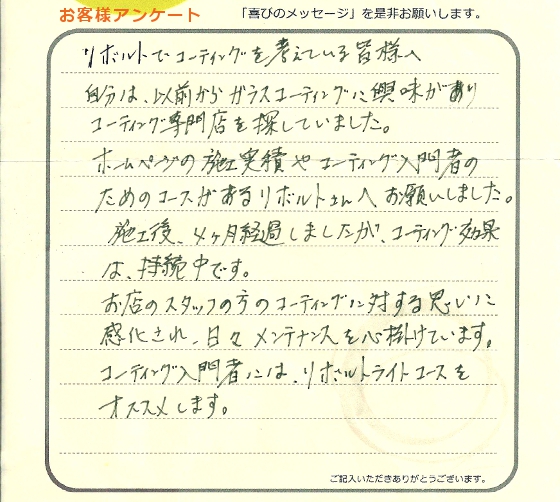 お客様アンケート 「喜びのメッセージ」を是非お願いします。
リボルトでコーティングを考えている皆様へ
自分は、以前からガラスコーティングに興味があり
コーティング専門店を探していました。
ホームページの施工実積やコーティング入門者の
ためのコースがあるリボルトさんへお願いしました。
施工後、4ヶ月経過しましたが、コーティング効果
は、持続中です。
お店のスタッフの方のコーティングに対する思いに
感化され、日々メンテナンスを心掛けています。
コーティング入門者には、リボルトライトコースを
オススメします。
ご記入いただきありがとうございます。